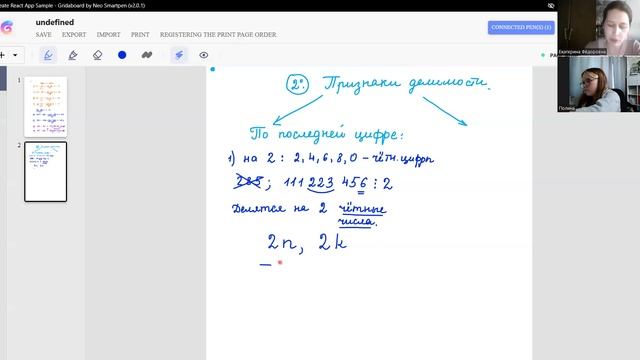 eate React App Sample - Gridaboard by Neo Smartpen (v2.0.1)
undefined
SAVE EXPORT IMPORT PRINT REGISTERING THE PRINT PAGE ORDER
CONNECTED PEN(S) (1)
Екатерина Фёдоровна
Полина
1
2
2° Признаки делимости.
По последней цифре:
1) на 2 : 2, 4, 6, 8, 0 – чётн. цифры
285 ; 111 223 456 ⋮ 2
Делятся на 2 чётные
числа.
2n, 2k